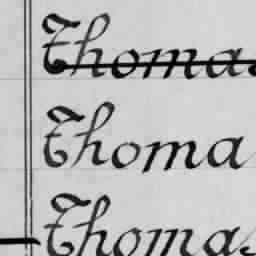 Thomas
Thoma
Thomas